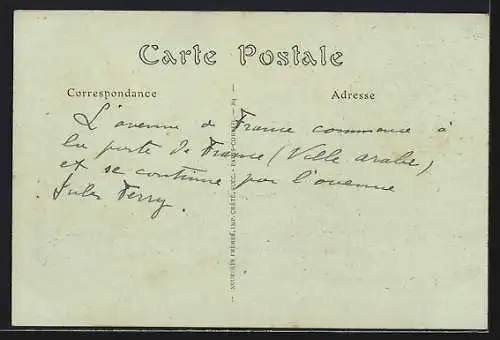 Carte Postale
Correspondance
Adresse
L'avenue de France commence à
la porte de France (Ville arabe)
et se continue par l'avenue
Jules Ferry.
FRÈRES, IMP. CRÉTÉ, SUCC.